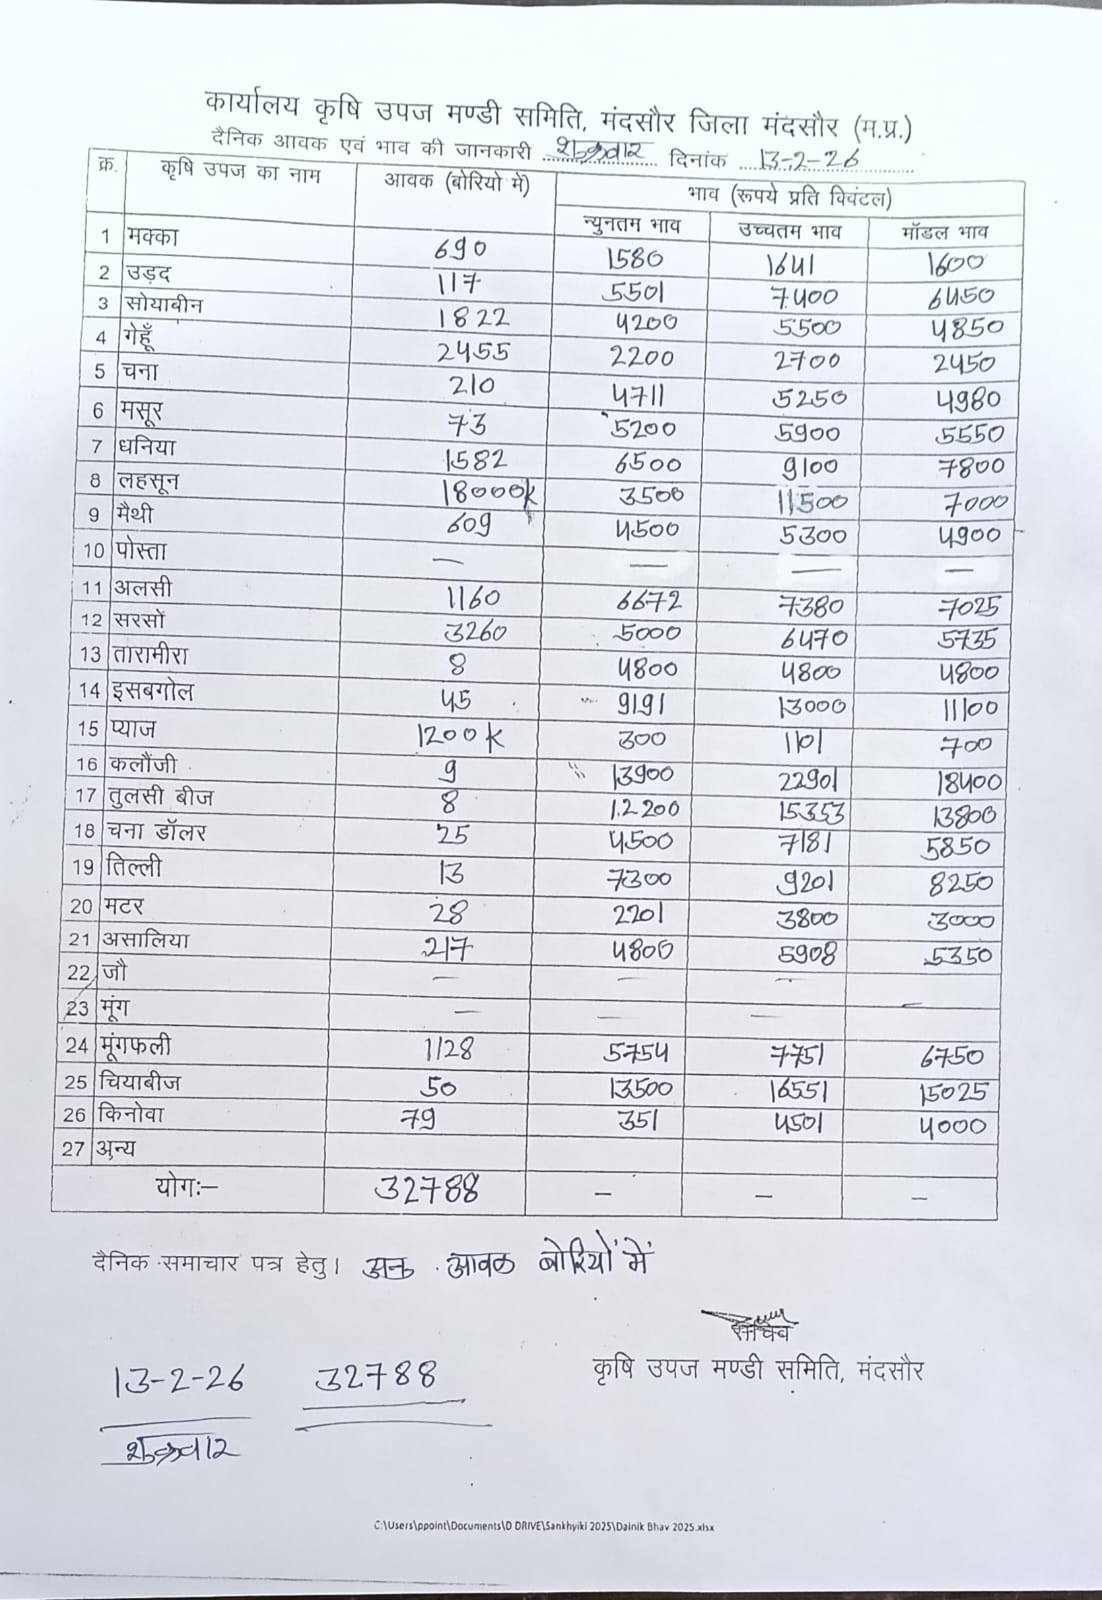 कार्यालय कृषि उपज मण्डी समिति, मंदसौर जिला मंदसौर (म.प्र.)
दैनिक आवक एवं भाव की जानकारी शुक्रवार दिनांक 13-2-26
क्र. कृषि उपज का नाम आवक (बोरियो में) भाव (रूपये प्रति क्विंटल)
न्युनतम भाव उच्चतम भाव मॉडल भाव
1 मक्का 690 1580 1641 1600
2 उड़द 117 5501 7400 6450
3 सोयाबीन 1822 4200 5500 4850
4 गेहूँ 2455 2200 2700 2450
5 चना 210 4711 5250 4980
6 मसूर 73 5200 5900 5550
7 धनिया 1582 6500 9100 7800
8 लहसून 18000k 3500 11500 7000
9 मैथी 609 4500 5300 4900
10 पोस्ता — — — —
11 अलसी 1160 6672 7380 7025
12 सरसों 3260 5000 6470 5735
13 तारामीरा 8 4800 4800 4800
14 इसबगोल 45 9191 13000 11100
15 प्याज 1200k 300 1101 700
16 कलौंजी 9 13900 22901 18400
17 तुलसी बीज 8 12200 15353 13800
18 चना डॉलर 25 4500 7181 5850
19 तिल्ली 13 7300 9201 8250
20 मटर 28 2201 3800 3000
21 असालिया 217 4800 5908 5350
22 जौ — — —
23 मूंग — — — —
24 मूंगफली 1128 5754 7751 6750
25 चियाबीज 50 13500 16551 15025
26 किनोवा 79 351 4501 4000
27 अन्य
योगः— 32788 — — —
दैनिक समाचार पत्र हेतु। आवक बोरियों में
सचिव
कृषि उपज मण्डी समिति, मंदसौर
13-2-26 32788
शुक्रवार
C:\Users\ppoint\Documents\D DRIVE\Sankhyiki 2025\Dainik Bhav 2025.xlsx